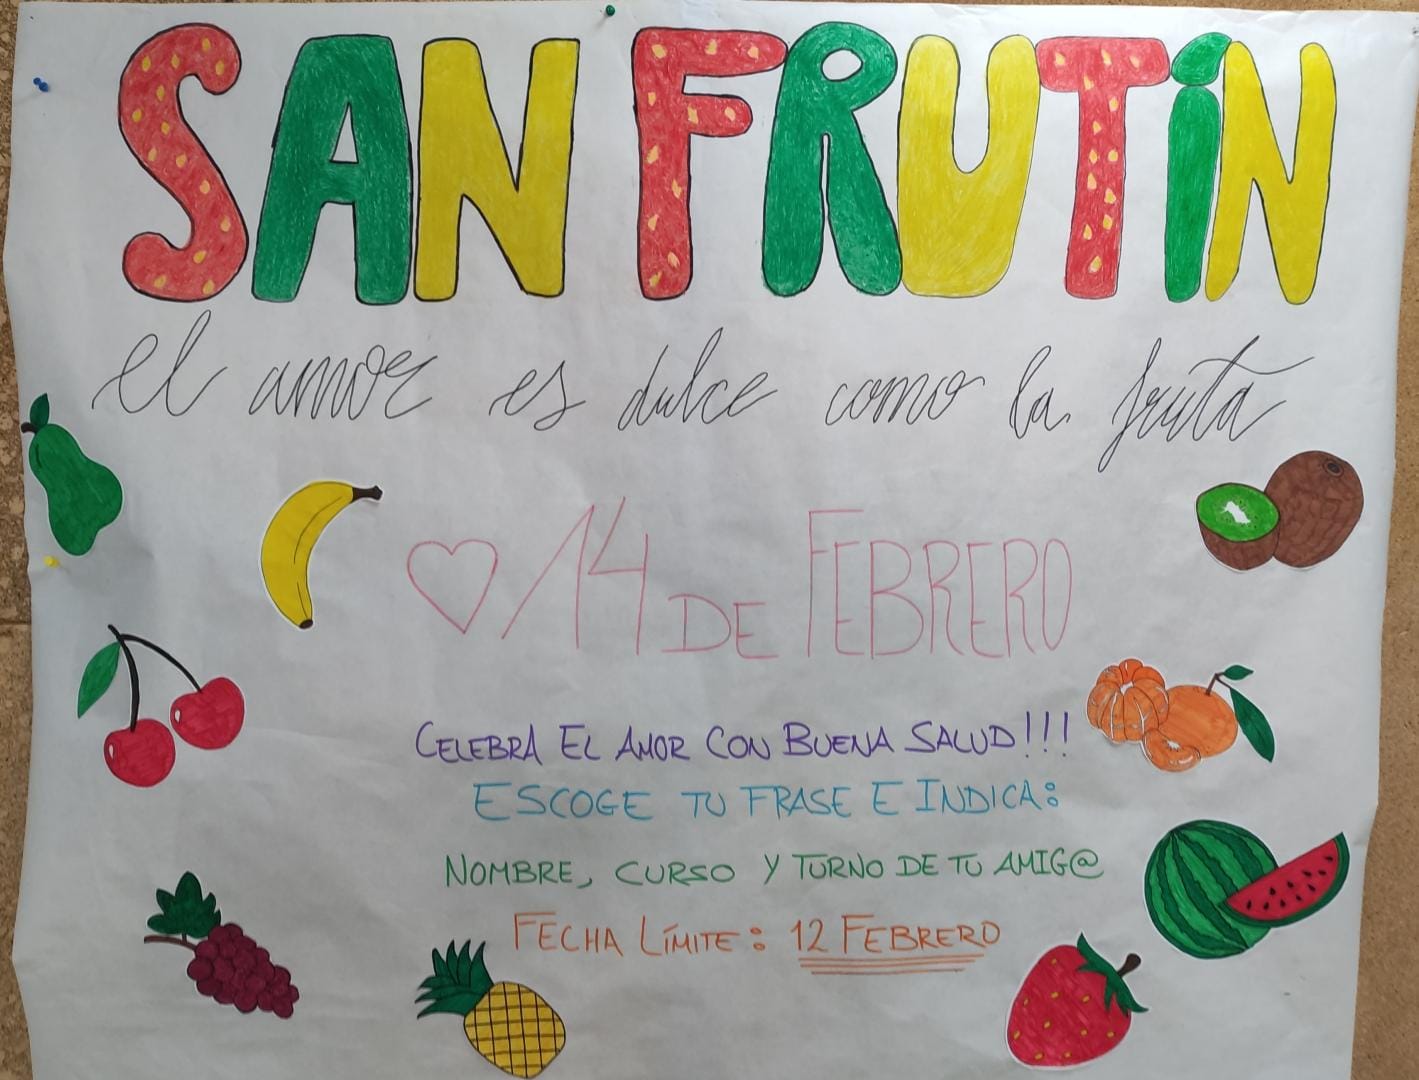 SAN FRUTÍN
el amor es dulce como la fruta
14 DE FEBRERO
CELEBRA EL AMOR CON BUENA SALUD!!!
ESCOGE TU FRASE E INDICA:
NOMBRE, CURSO Y TURNO DE TU AMIG@
FECHA LÍMITE: 12 FEBRERO